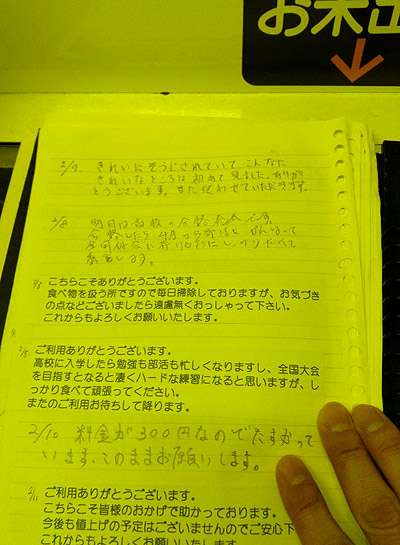 お米
2/7. きれいにそうじされていて、こんなに
きれいなところは初めて見ました。ありが
とうございます。また使わせていただきます。
2/8 明日は高校の合格発表です。
合格したら4月から部活を
全国大会に行け
2/8 こちらこそありがとうございます。
食べ物を扱う所ですので毎日掃除しておりますが、お気づき
の点などございましたら遠慮無くおっしゃって下さい。
これからもよろしくお願いいたします。
ご利用ありがとうございます。
高校に入学したら勉強も部活も忙しくなりますし、全国大会
を目指すとなると凄くハードな練習になると思いますが、し
っかり食べて頑張ってください。
またのご利用お待ちして降ります。
2/10 料金が300円なのでたすかって
います。このままお願いします。
2/11 ご利用ありがとうございます。
こちらこそ皆様のおかげで助かっております。
今後も値上げの予定はございませんのでご安心下
これからもよろしくお願いいたします